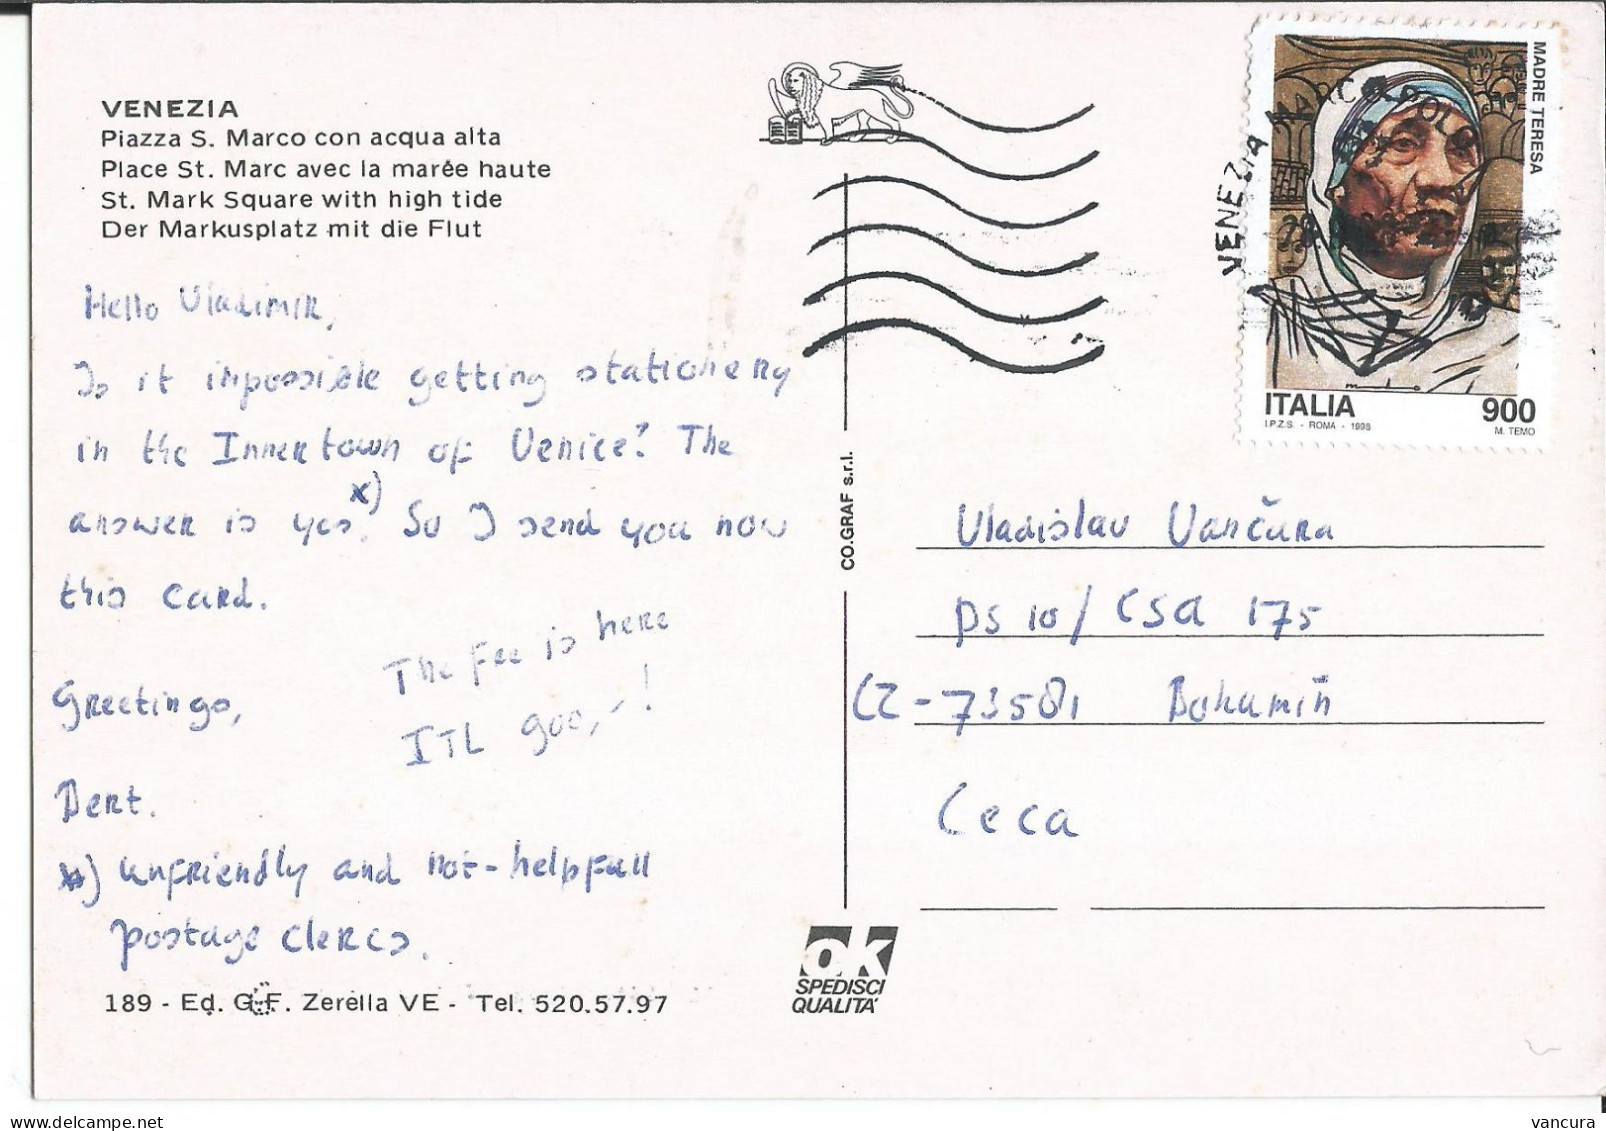 VENEZIA
Piazza S. Marco con acqua alta
Place St. Marc avec la marée haute
St. Mark Square with high tide
Der Markusplatz mit die Flut
Hello Vladimir,
Is it impossible getting stationery
in the Innertown of Venice? The
answer is yes.*) So I send you now
this card.
The Fee is here
ITL 900,-!
Greetings,
Bert.
*) unfriendly and not-helpfull
postage clercs.
189 - Ed. G.F. Zerella VE - Tel. 520.57.97
CO.GRAF s.r.l.
ok
SPEDISCI
QUALITA'
VENEZIA MARCO POLO
MADRE TERESA
ITALIA 900
I.P.Z.S. - ROMA - 1998 M. TEMO
Vladislav Vančura
PS 10/ CSA 175
CZ-73581 Bohumiň
Ceca
vancura